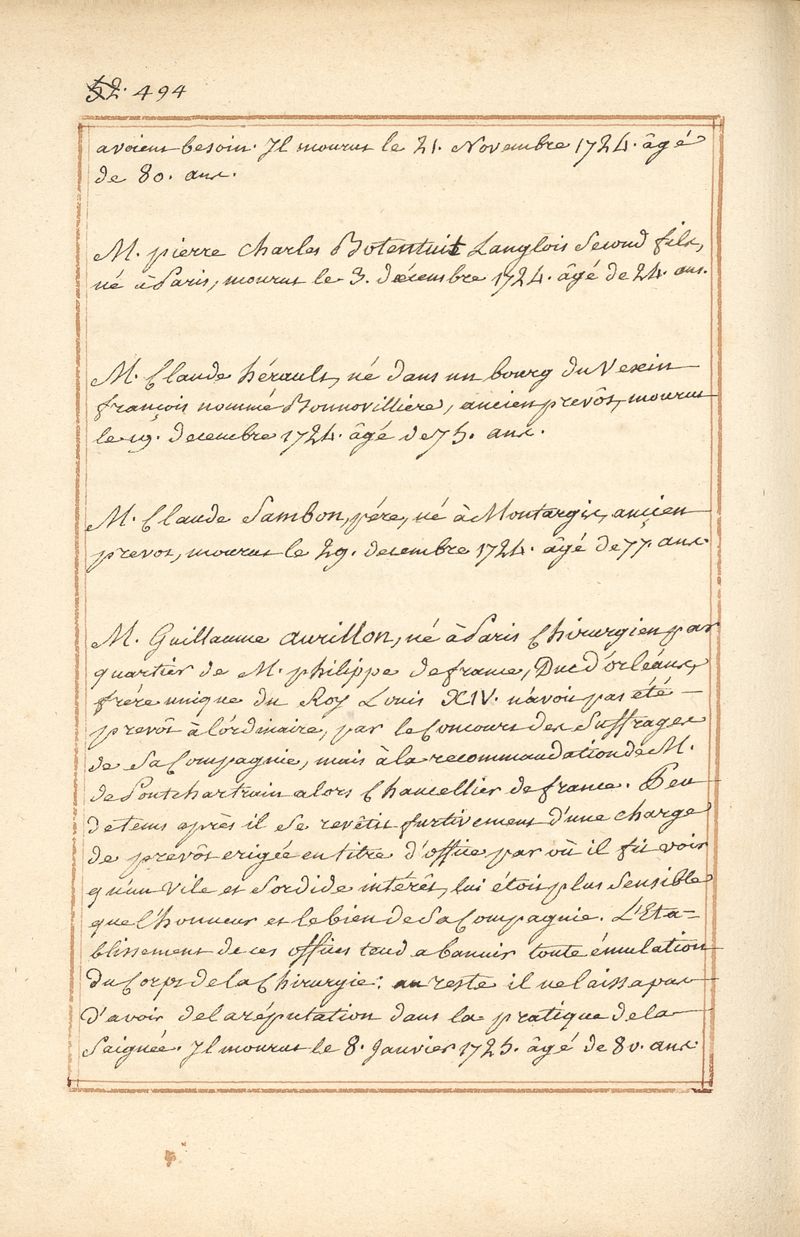 52. 494
avoient besoin. Il mourut le 21. Novembre 1724. âgé
de 80. ans.
M. pierre Charles Botentuit Langlois Second fils,
né à Paris, mourut le 3. décembre 1724. âgé de 24. ans.
M. Claude hérault, né dans un bourg du Vexin
françois nommé Bonnovilliere, ancien prevôt, mourut
le 19. decembre 1724. âgé de 75. ans.
M. Claude Sambon, pére, né à Montargis, ancien
prevot, mourut le 29. decembre 1724. âgé de 77. ans.
M. Guillaume aurillon, né à Paris Chirurgien par
quartier de M. philippe de france, Duc d'orléans,
frére unique du Roy Louis XIV. n'avoit pas été
prevôt à l'órdinaire, par le Concours des Suffrages
de Sa Compagnie, mais à la recommandation de M.
de Pontchartrain alors Chancellier de france. Peu
de tems aprés il se revêtit furtivement d'une charge
de prevôt erigée en titre d'office par où il fit voir
qu'un vile et Sordide intérêt, lui étoit plus Sensible
que l'honneur et le bien de Sa Compagnie. L'Eta-
blissement de ces offices tend a bannir toute émulation
du Corps de la Chirurgie: au reste il ne laissa pas
d'avoir de la réputation dans la pratique de la
Saignée. Il mourut le 8. Janvier 1725. âgé de 80. ans.